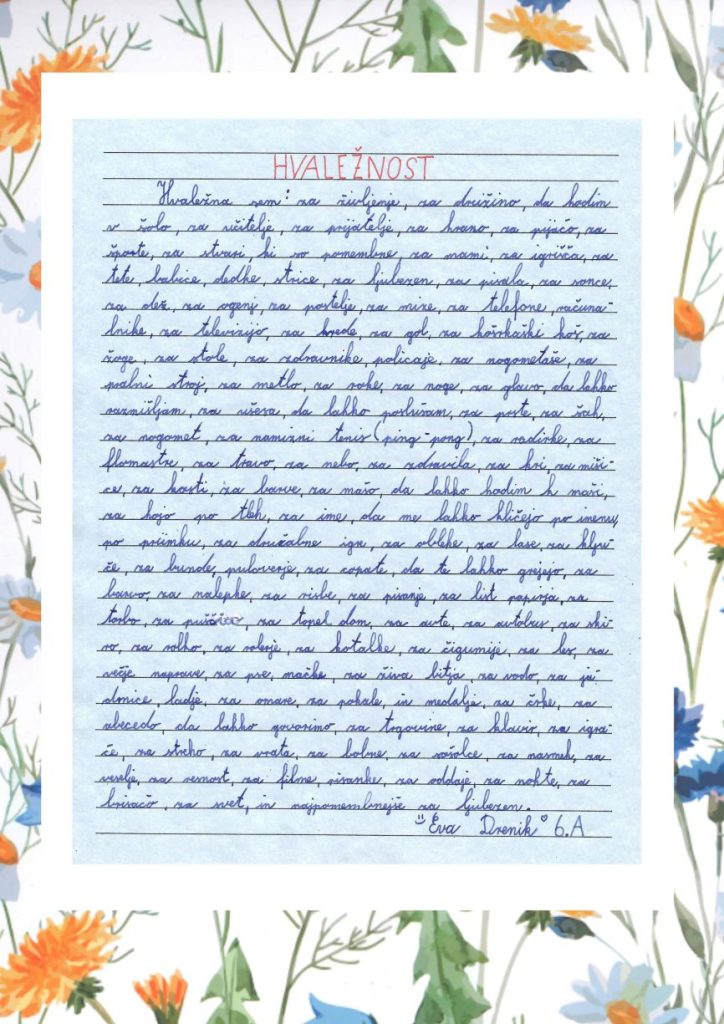 HVALEŽNOST
Hvaležna sem: za življenje, za družino, da hodim
v šolo, za učitelje, za prijatelje, za hrano, za pijačo, za
športe, za stvari, ki so pomembne, za mami, za igrišča, za
tete, babice, dedke, strice, za ljubezen, za pisala, za sonce,
za dež, za ogenj, za postelje, za mize, za telefone, računa-
lnike, za televizijo, za krede, za gol, za košrkaški koš, za
žoge, za stole, za zdravnike, policaje, za nogometaše, za
pralni stroj, za metlo, za roke, za noge, za glavo, da lahko
razmišljam, za ušesa, da lahko poslušam, za prste, za šah,
za nogomet, za namizni tenis (ping-pong), za radirke, za
flomastre, za travo, za nebo, za zdravila, za kri, za miši-
ce, za kosti, za barve, za mašo, da lahko hodim k maši,
za hojo po tleh, za ime, da me lahko kličejo po imenu,
po priimku, za družabne igre, za obleke, za lase, za klju-
če, za bunde, puloverje, za copate, da te lahko grejejo, za
barvo, za nalepke, za risbe, za pisanje, za list papirja, za
torbo, za za topel dom, za avte, za avtobus, za ski-
ro, za rolko, za rolerje, za kotalke, za čigumije, za les, za
večje naprave, za pse, mačke, za živa bitja, za vodo, za ja-
drnice, ladje, za omare, za pokale, in medalje, za črke, za
abecedo, da lahko govorimo, za trgovine, za klavir, za igra-
če, za streho, za vrata, za bolne, za sošolce, za nasmeh, za
veselje, za resnost, za filme, risanke, za oddaje, za nohte, za
brisačo, za svet, in najpomembnejše za ljubezen.
Eva Drenik 6.A